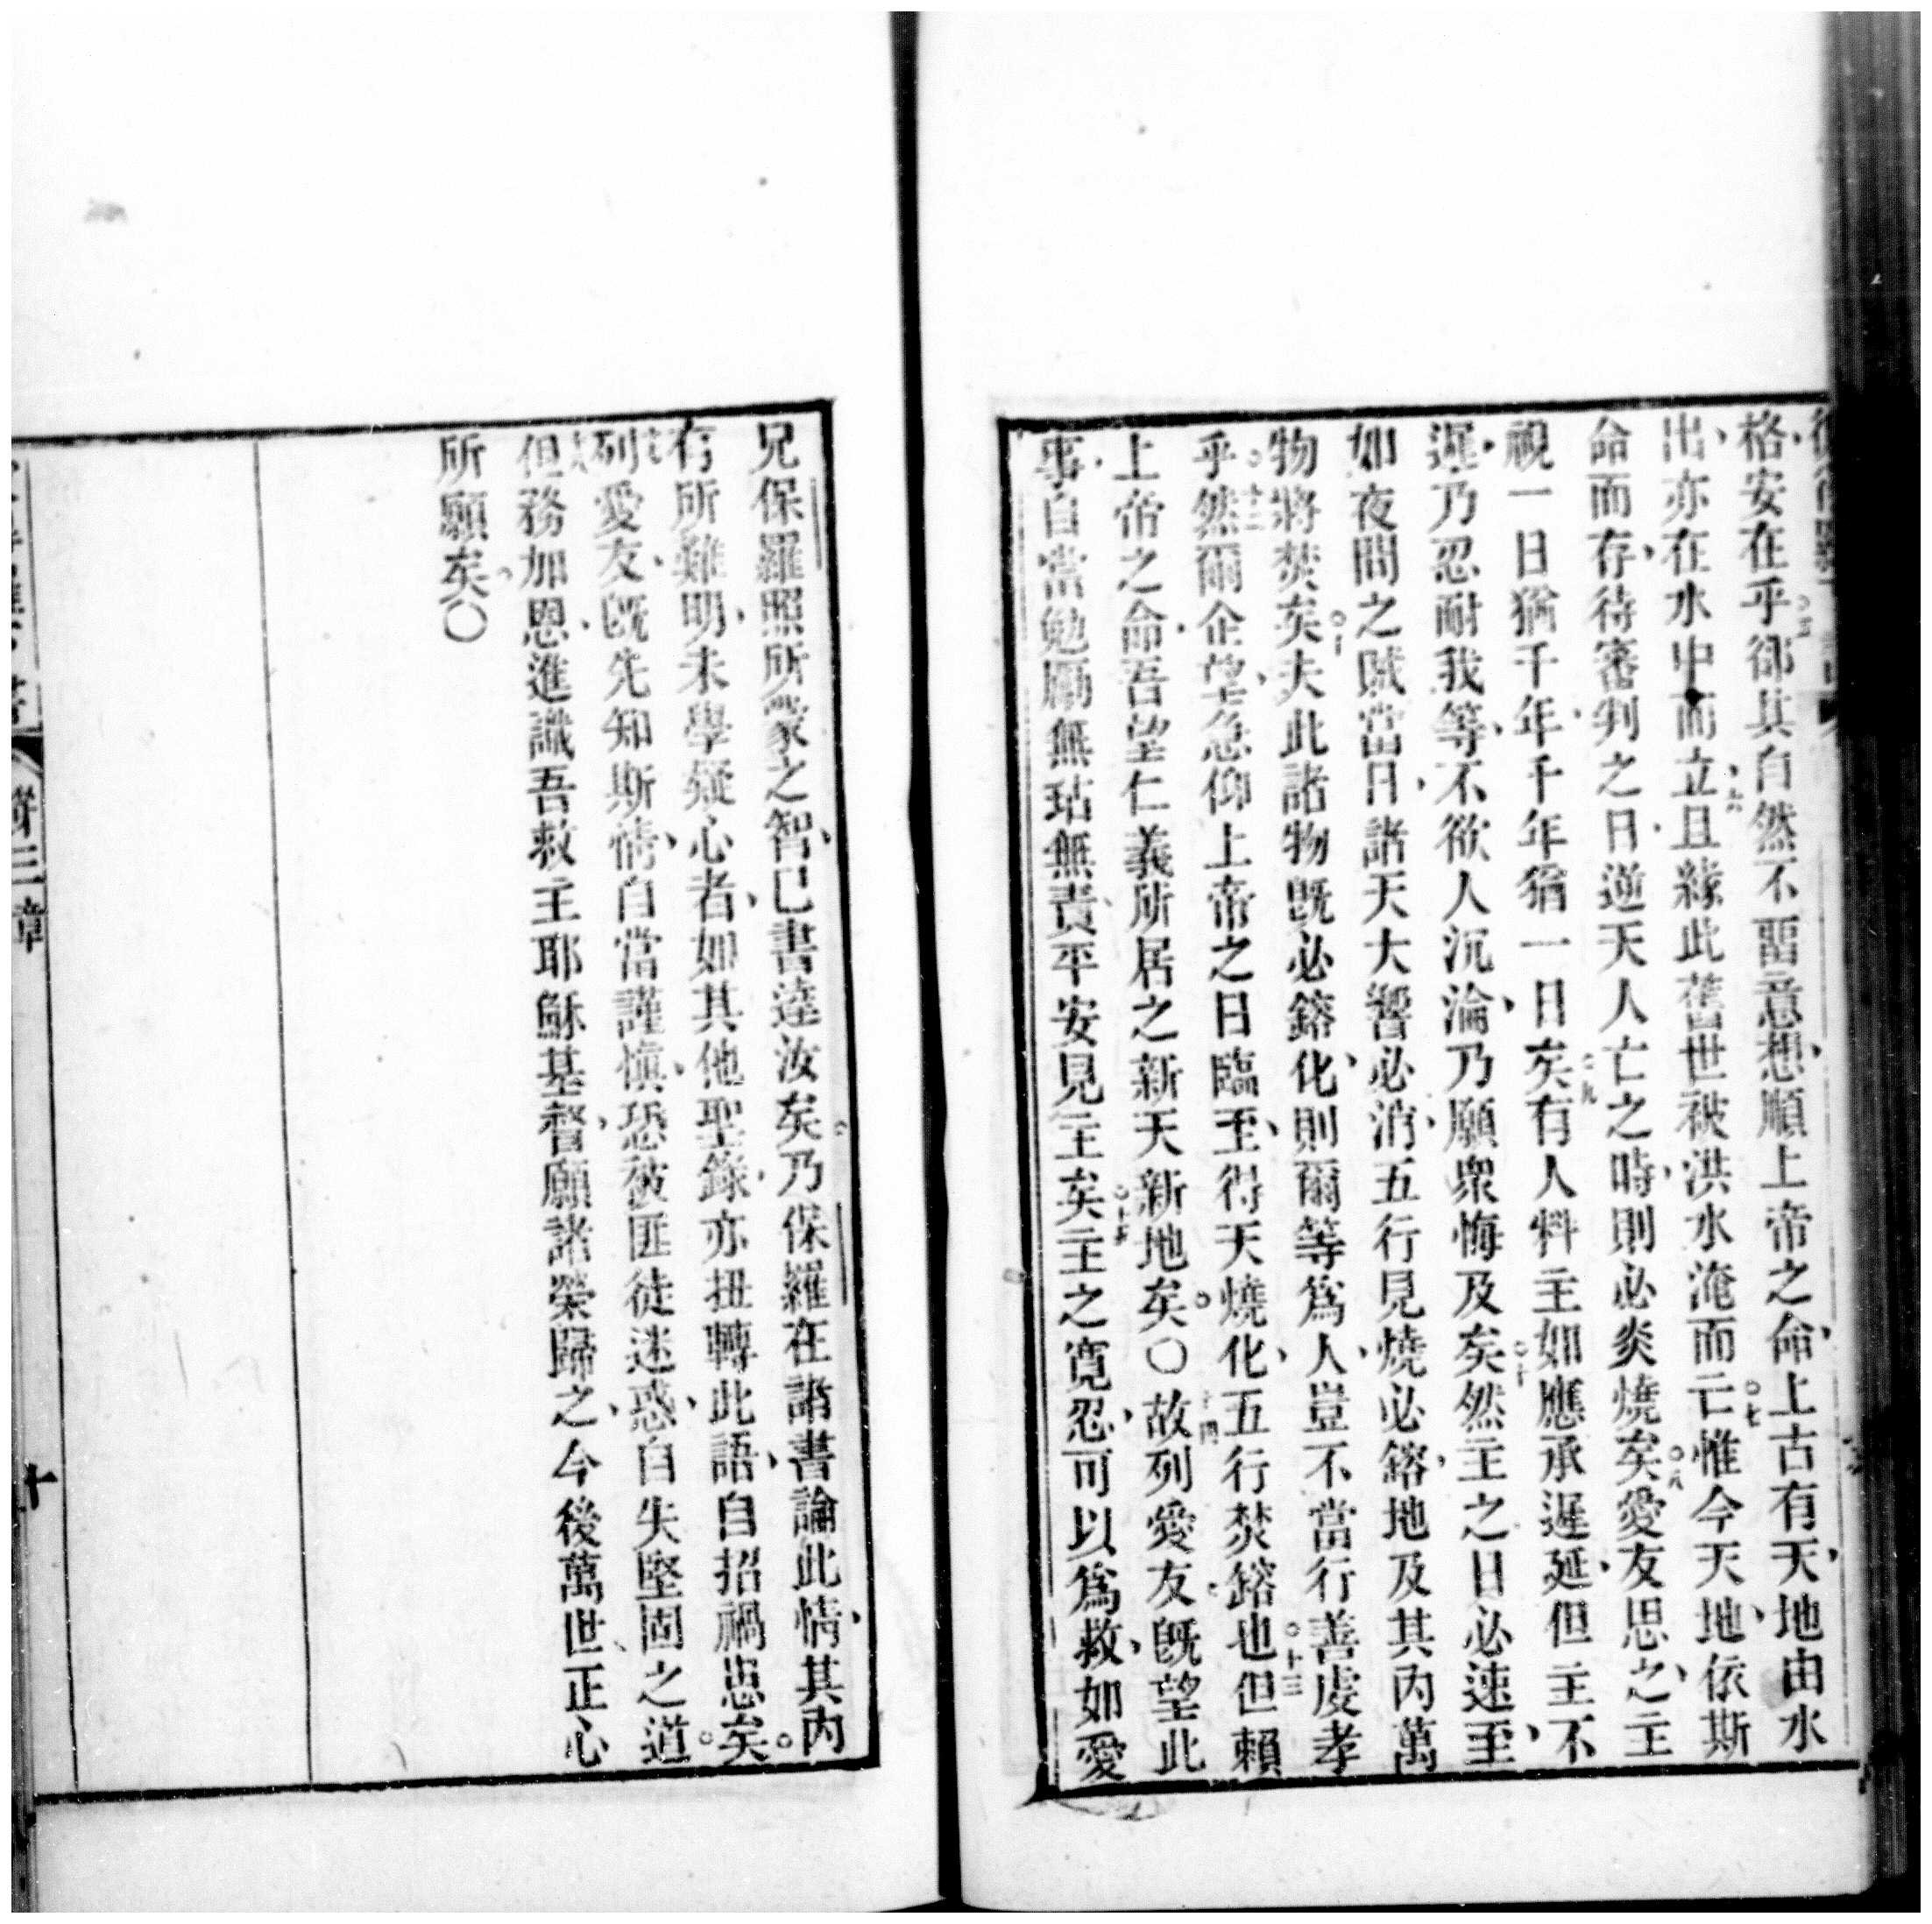 格、安在乎、○五郤其自然不畱意想、順上帝之命、上古有天、地由水
出、亦在水中而立、六且緣此舊世被洪水淹而亡、○七惟今天地、依斯
命而存、待審判之日、逆天人亡之時、則必炎燒矣、○八愛友思之、主
視一日猶千年、千年猶一日矣、○九有人料主如應承遲延、但主不
遲、乃忍耐我等、不欲人沉淪、乃願衆悔及矣、○十然主之日必速至、
如夜間之賊、當日、諸天大響必消、五行見燒必鎔、地及其內萬
物將焚矣、○十一夫此諸物旣必鎔化、則爾等爲人、豈不當行善虔孝
乎、○十二然爾企望、急仰上帝之日臨至、得天燒化、五行焚鎔也、○十三但賴
上帝之命、吾望仁義所居之新天新地矣。○十四故列愛友、旣望此
事、自當勉勵、無玷無責、平安見主矣、○十五主之寬忍、可以爲救、如愛
兄保羅照所蒙之智、已書達汝矣、乃保羅在諸書論此情、其內
有所難明、未學疑心者、如其他聖錄、亦扭轉此語、自招禍患矣。
列愛友、旣先知斯情、自當謹愼、恐被匪徒迷惑、自失堅固之道。
但務加恩、進識吾救主耶穌基督、願諸榮歸之、今後萬世、正心
所願矣。○
第三章
十